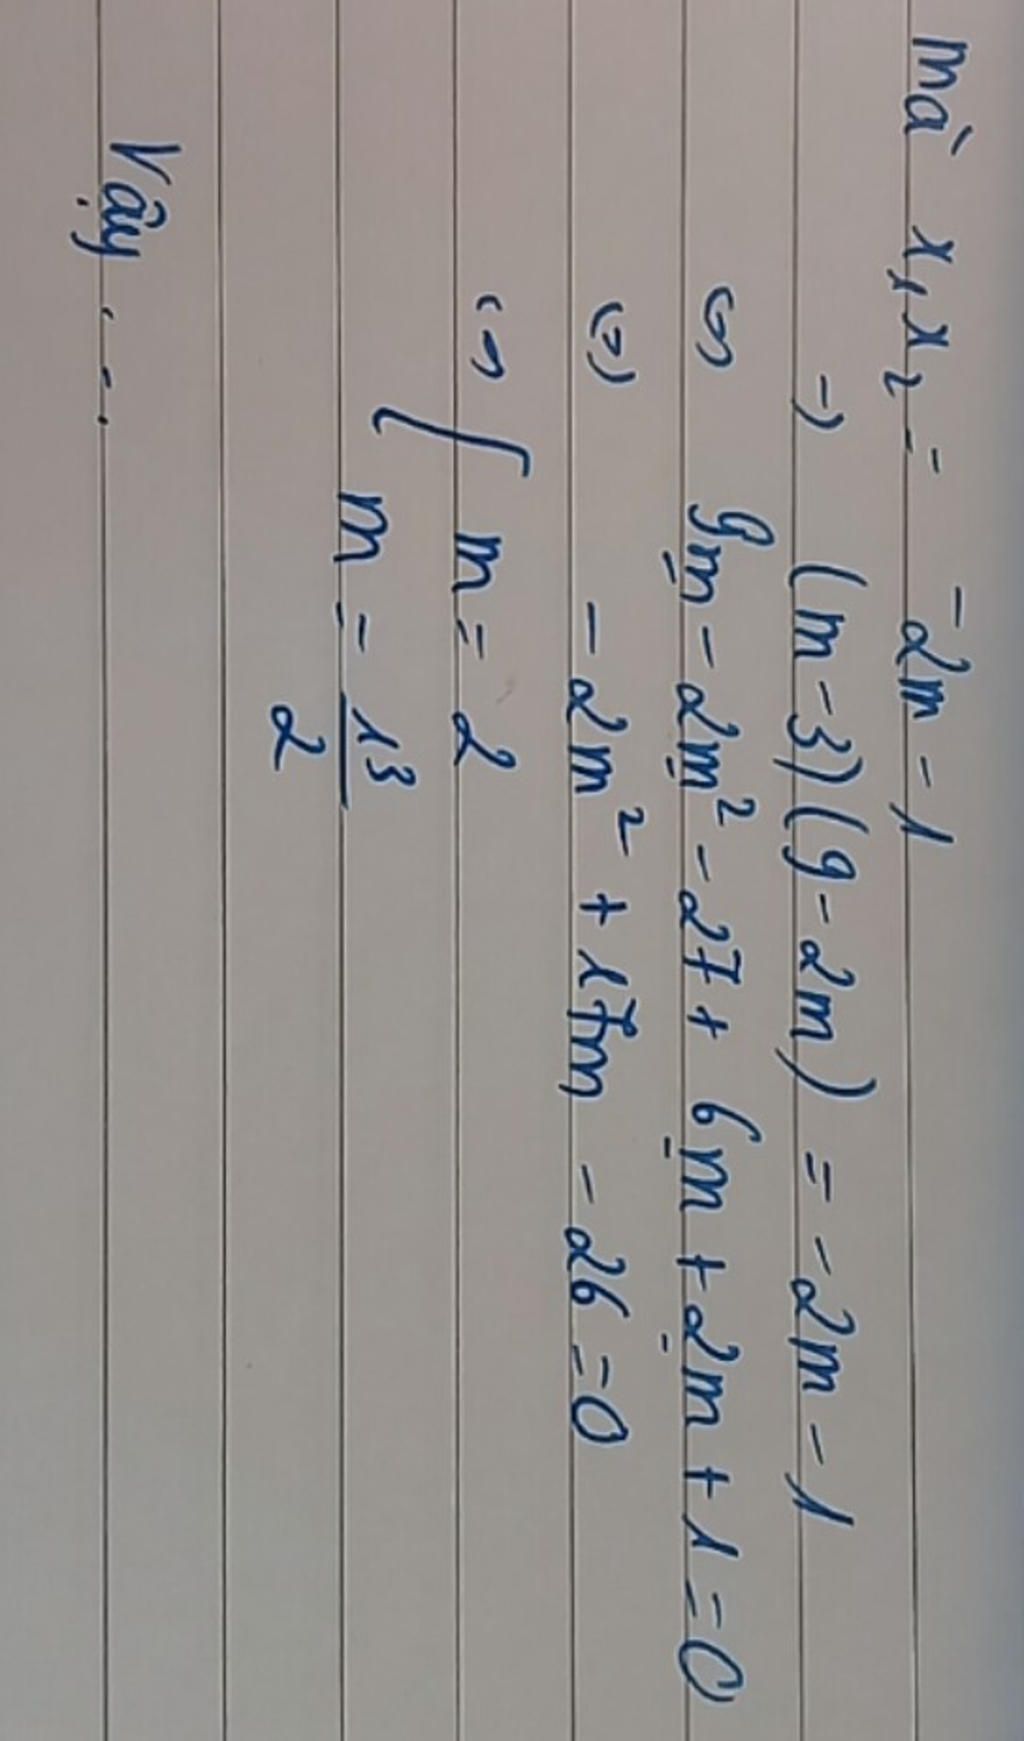 mà x₁x₂ = -2m - 1
→ (m - 3)(9 - 2m) = -2m - 1
(=) 9m - 2m² - 27 + 6m + 2m + 1 = 0
(=) - 2m² + 17m - 26 = 0
(=) [ m = 2
m = 13/2
Vậy ...